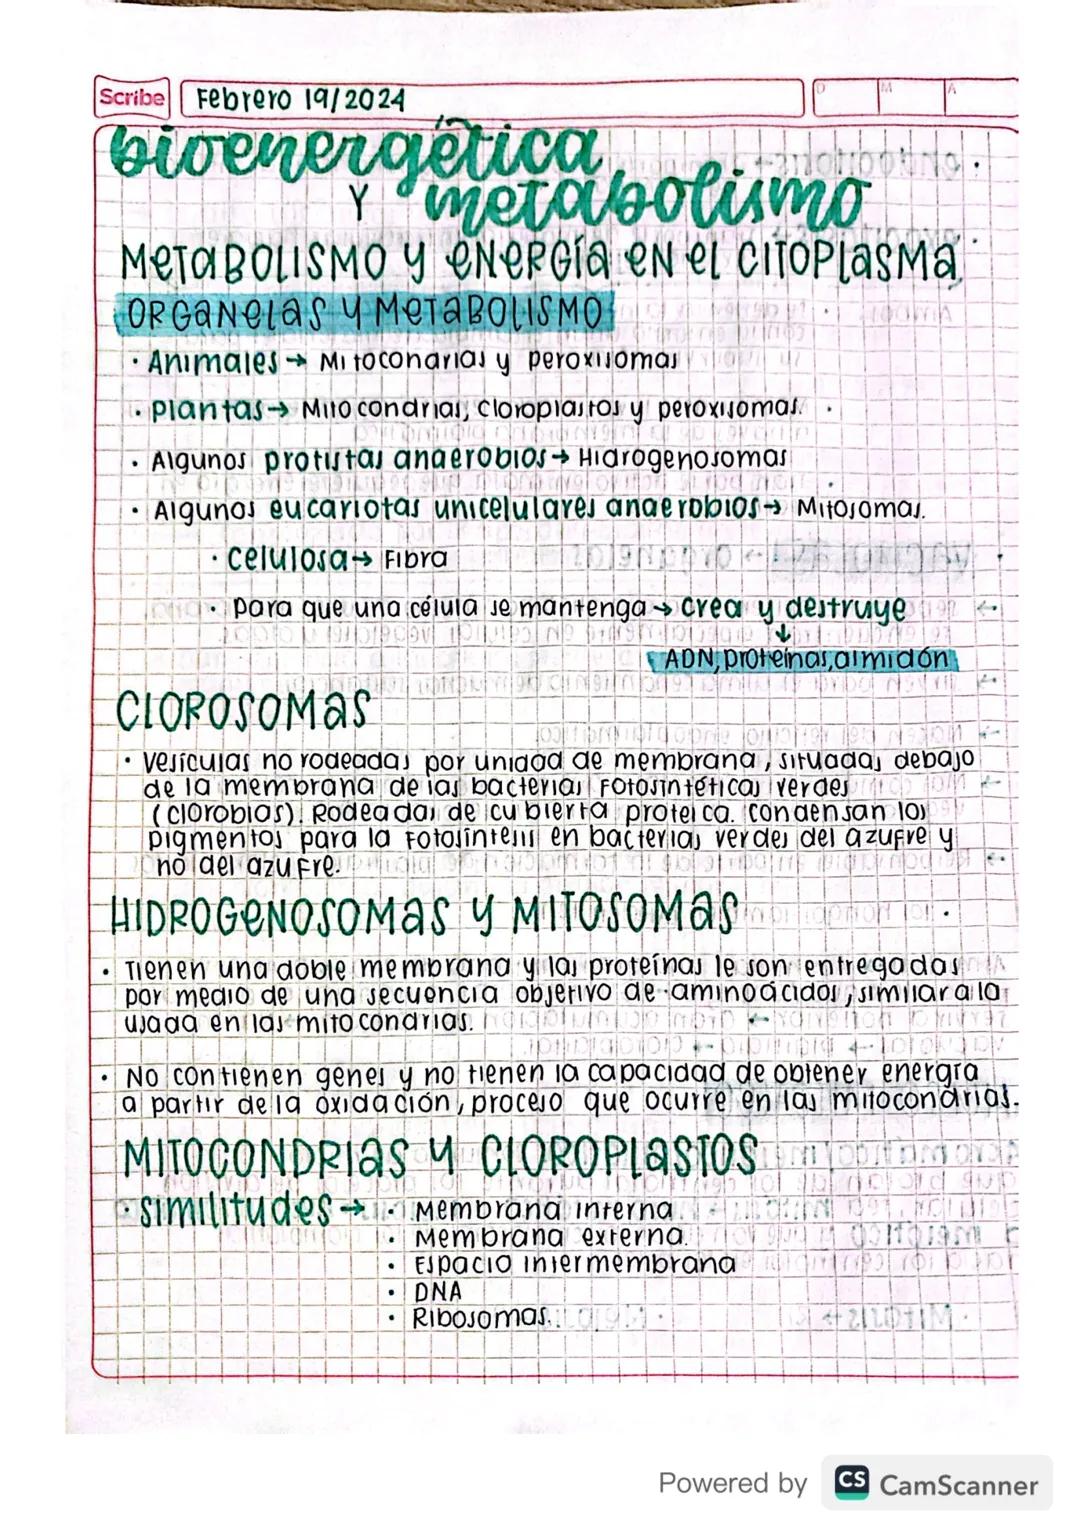 Scribe
Febrero 19/2024
D M A
bioenergética
Y metabolismo
METABOLISMO y ENERGÍA EN EL CITOPLASMA.
ORGANELAS Y METABOLISMO
· Animales → Mitoconarias y peroxisomas
· Plantas → Mitocondrias, cloroplastos y peroxisomas.
· Algunos protistas anaerobios → Hidrogenosomas
· Algunos eucariotas unicelulares anaerobios → Mitosomas.
· Celulosa → Fibra
· Para que una célula se mantenga → crea y destruye
↓
ADN, proteínas, almidón
CLOROSOMAS
· Vesículas no rodeadas por unidad de membrana, situadas debajo
de la membrana de las bacterias fotosintéticas verdes
(clorobios). Rodeadas de cubierta proteica. condensan los
pigmentos para la fotosíntesis en bacterias verdes del azufre y
no del azufre.
HIDROGENOSOMAS y MITOSOMAS
· Tienen una doble membrana y las proteínas le son entregadas
por medio de una secuencia objetivo de aminoácidos, similar a la
usada en las mitocondrias.
· No contienen genes y no tienen la capacidad de obtener energía
a partir de la oxidación, proceso que ocurre en las mitocondrias.
MITOCONDRIAS Y CLOROPLASTOS
· similitudes → · Membrana interna
· Membrana externa.
· Espacio intermembrana
· DNA
· Ribosomas.
Powered by CS CamScanner